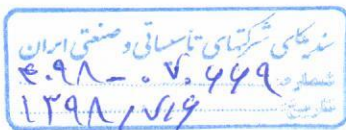 سندیکای شرکتهای تأسیساتی و صنعتی ایران
شماره: ۴۰۹۸-۰۷۰۶۶۹
تاریخ: ۱۳۹۸/۷/۶